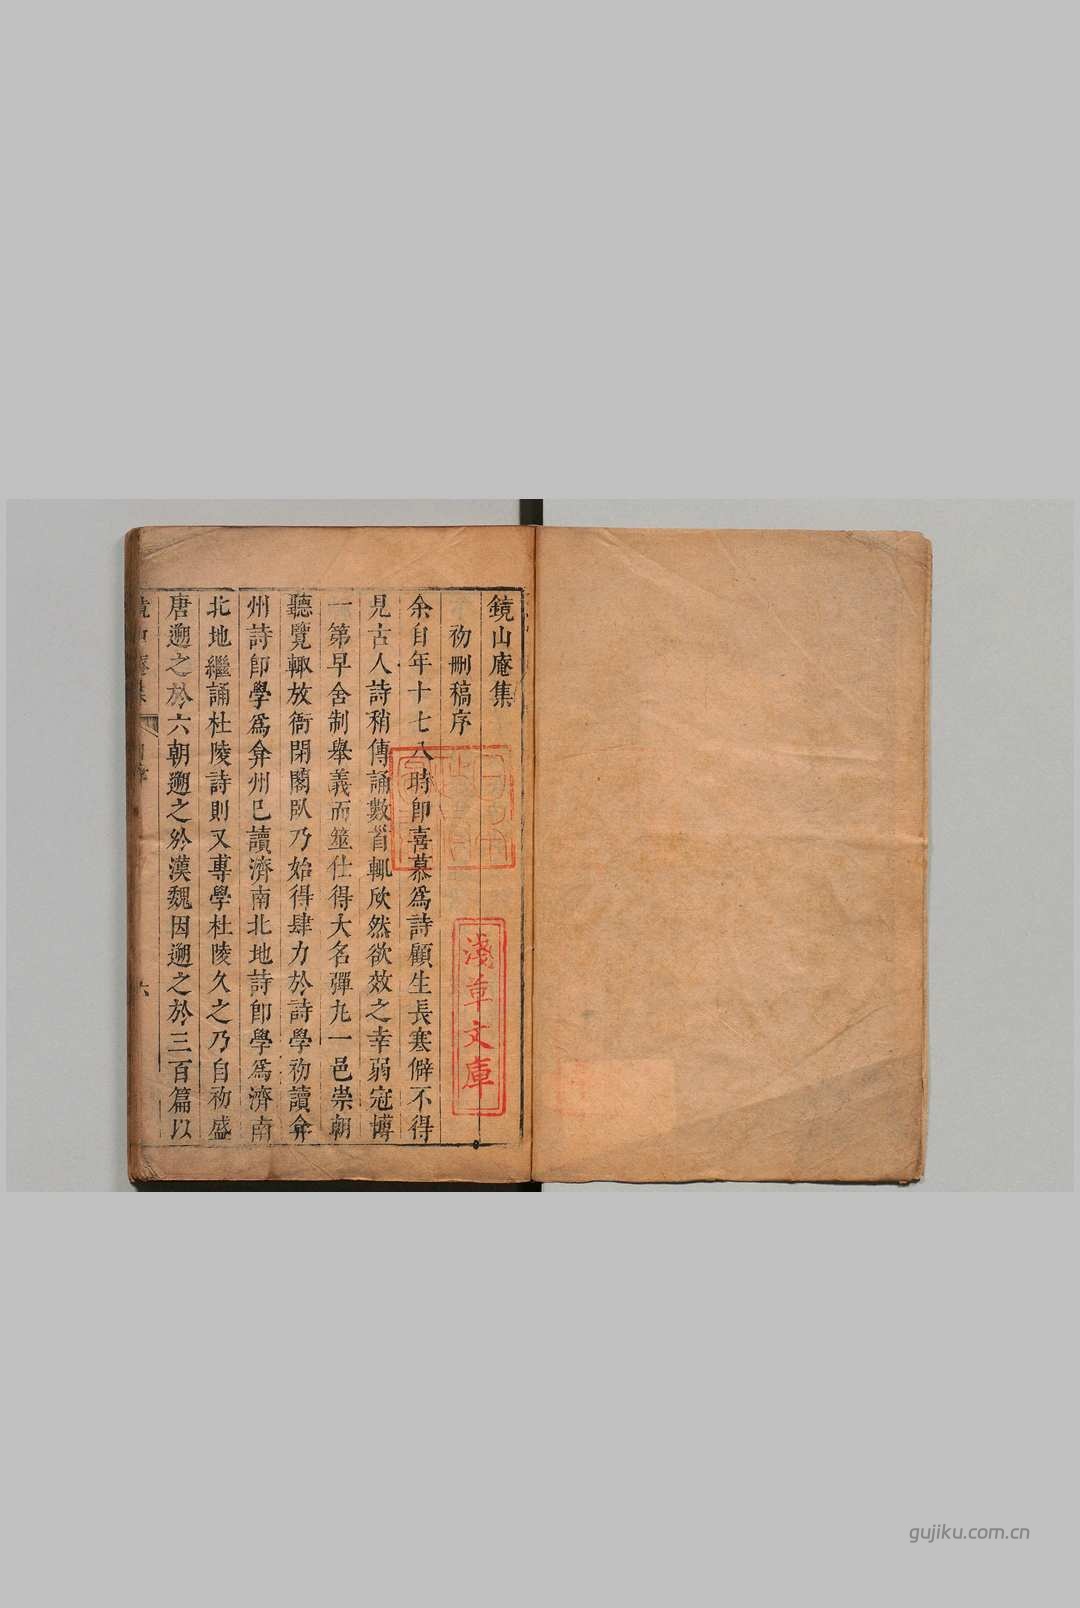 鏡山庵集
初刪稿序
余自年十七八時卽喜慕爲詩顧生長寒僻不得
見古人詩稍傳誦數首輒欣然欲效之幸弱冠博
一第早舍制舉義而筮仕得大名彈丸一邑崇朝
聽覽輙放衙閉閣臥乃始得肆力於詩學初讀弇
州詩卽學爲弇州已讀濟南北地詩卽學爲濟南
北地繼誦杜陵詩則又專學杜陵久之乃自初盛
唐遡之於六朝遡之於漢魏因遡之於三百篇以
六
淺草文庫
gujiku.com.cn